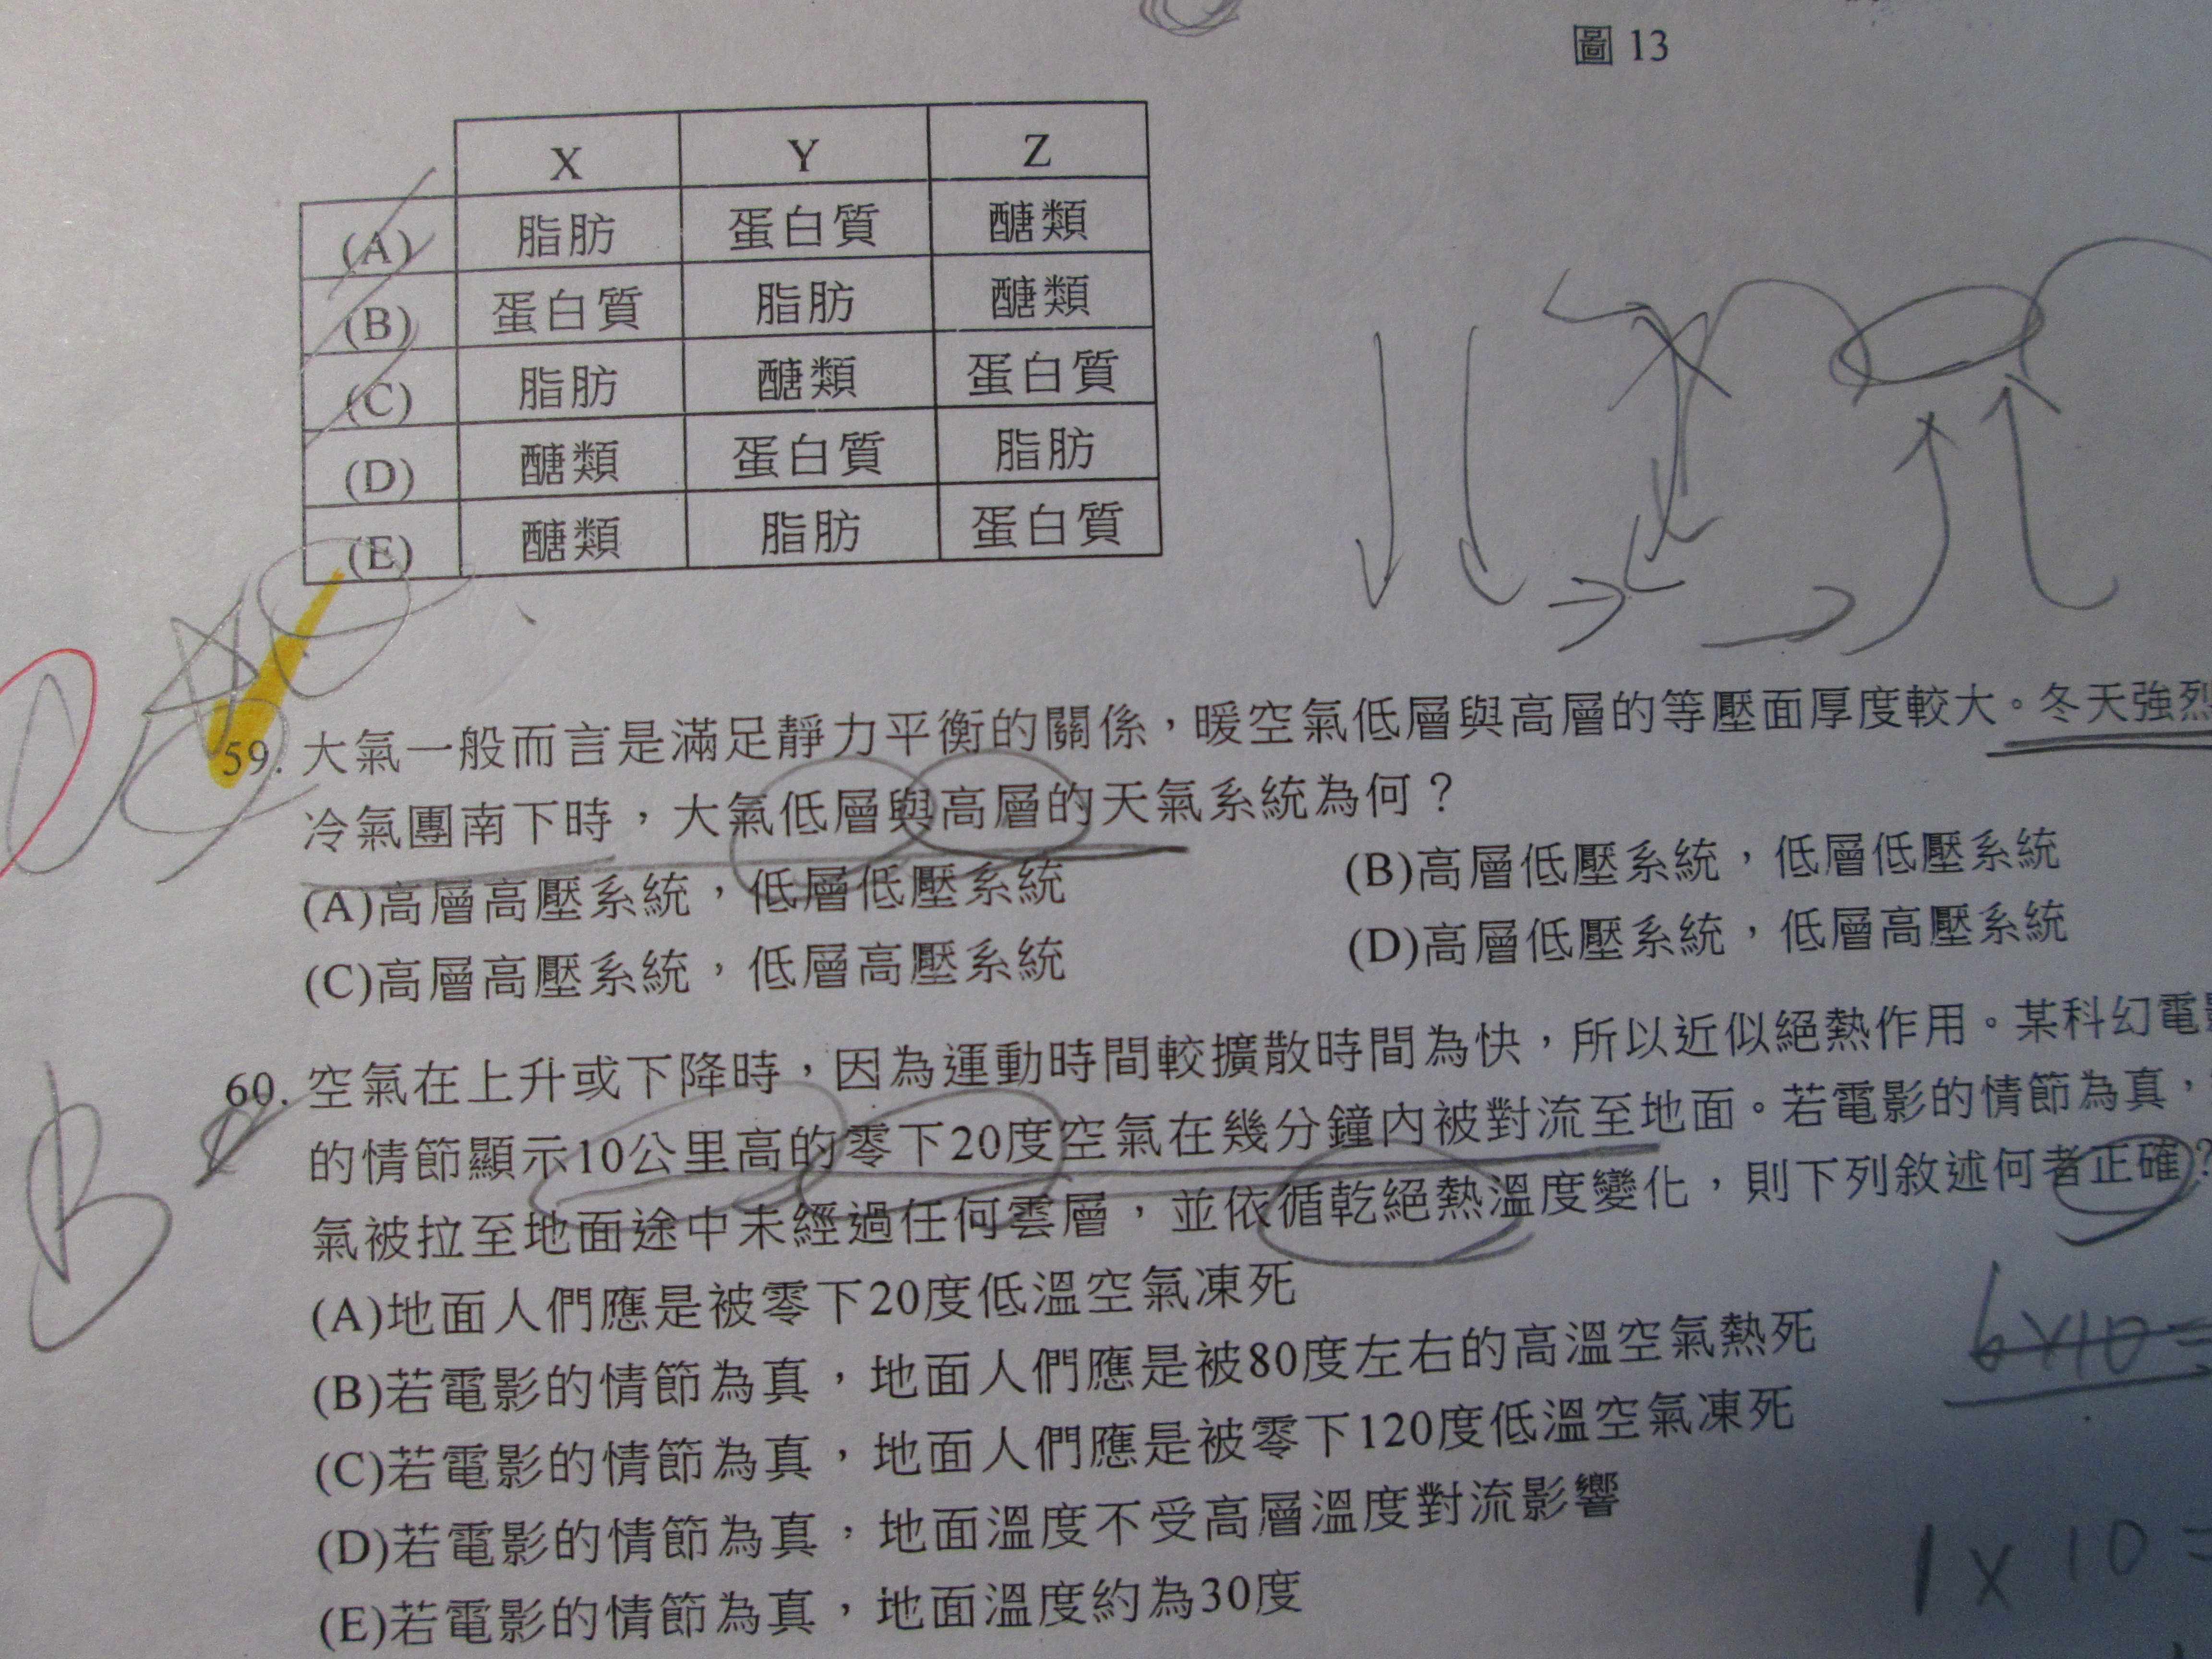 圖 13
X Y Z
(A) 脂肪 蛋白質 醣類
(B) 蛋白質 脂肪 醣類
(C) 脂肪 醣類 蛋白質
(D) 醣類 蛋白質 脂肪
(E) 醣類 脂肪 蛋白質
59. 大氣一般而言是滿足靜力平衡的關係，暖空氣低層與高層的等壓面厚度較大。冬天強烈
冷氣團南下時，大氣低層與高層的天氣系統為何？
(A)高層高壓系統，低層低壓系統 (B)高層低壓系統，低層低壓系統
(C)高層高壓系統，低層高壓系統 (D)高層低壓系統，低層高壓系統
B
60. 空氣在上升或下降時，因為運動時間較擴散時間為快，所以近似絕熱作用。某科幻電影
的情節顯示10公里高的零下20度空氣在幾分鐘內被對流至地面。若電影的情節為真，
氣被拉至地面途中未經過任何雲層，並依循乾絕熱溫度變化，則下列敘述何者正確？
(A)地面人們應是被零下20度低溫空氣凍死
(B)若電影的情節為真，地面人們應是被80度左右的高溫空氣熱死
6×10=
(C)若電影的情節為真，地面人們應是被零下120度低溫空氣凍死
(D)若電影的情節為真，地面溫度不受高層溫度對流影響
1×10=
(E)若電影的情節為真，地面溫度約為30度